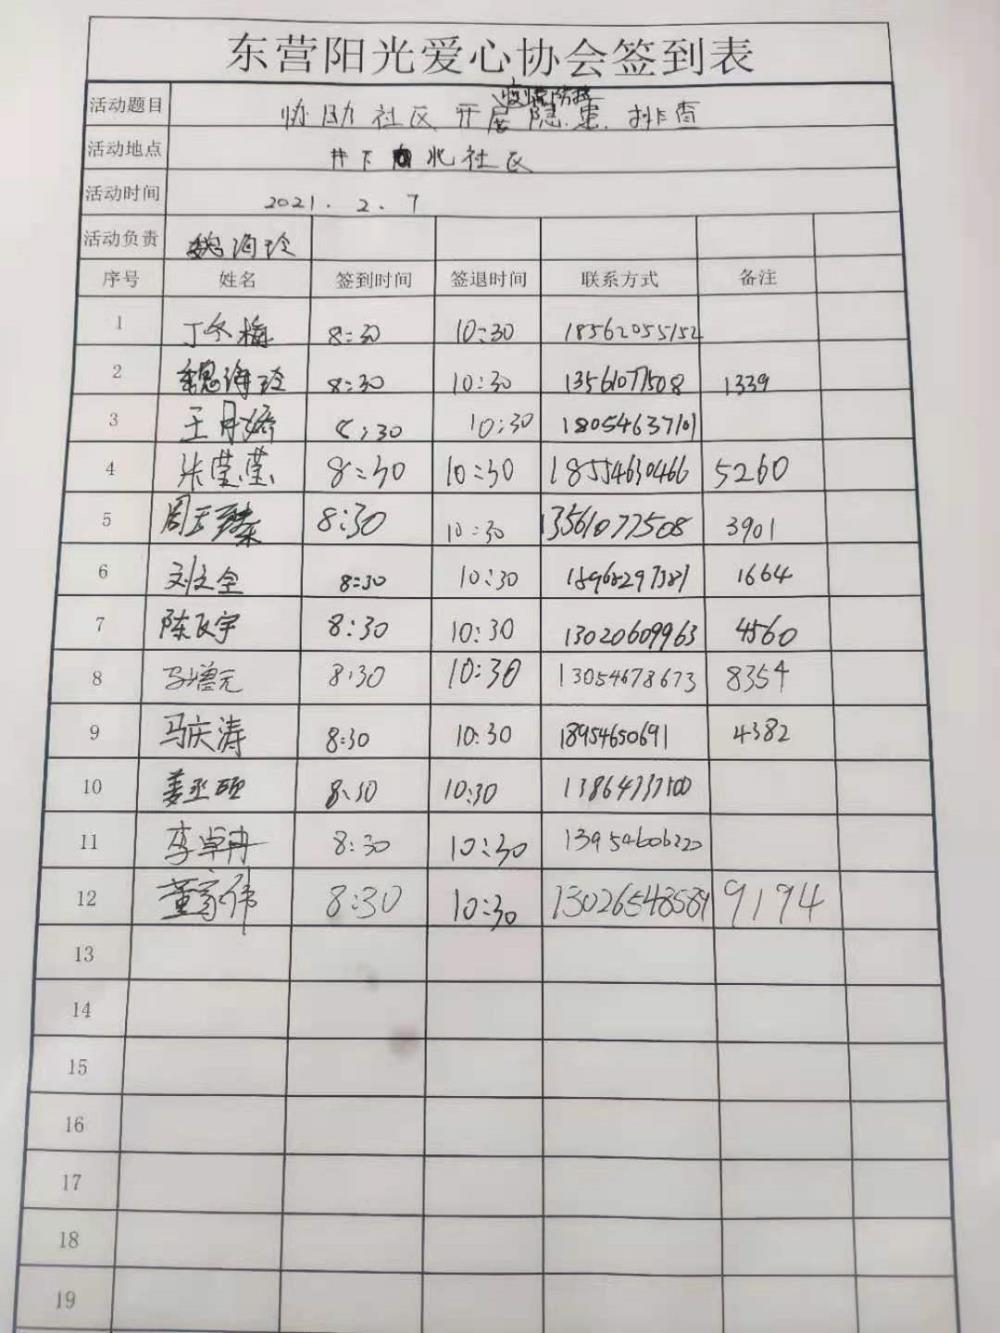 东营阳光爱心协会签到表
活动题目 协助社区开展疫情防控隐患排查
活动地点 井下北社区
活动时间 2021.2.7
活动负责 魏海玲
序号 姓名 签到时间 签退时间 联系方式 备注
1 丁冬梅 8:30 10:30 18562055152
2 魏海玲 8:30 10:30 13561077508 1339
3 王丹娇 8:30 10:30 18054637101
4 朱莹莹 8:30 10:30 18554630466 5260
5 周玉臻 8:30 10:30 13561077508 3901
6 刘文全 8:30 10:30 1664
7 陈飞宇 8:30 10:30 13020609963 4560
8 马增元 8:30 10:30 13054678673 8354
9 马庆涛 8:30 10:30 18954650691 4382
10 姜丞硕 8:30 10:30 13864737500
11 李卓冉 8:30 10:30 13954606220
12 董家伟 8:30 10:30 13026548589 9194
13
14
15
16
17
18
19